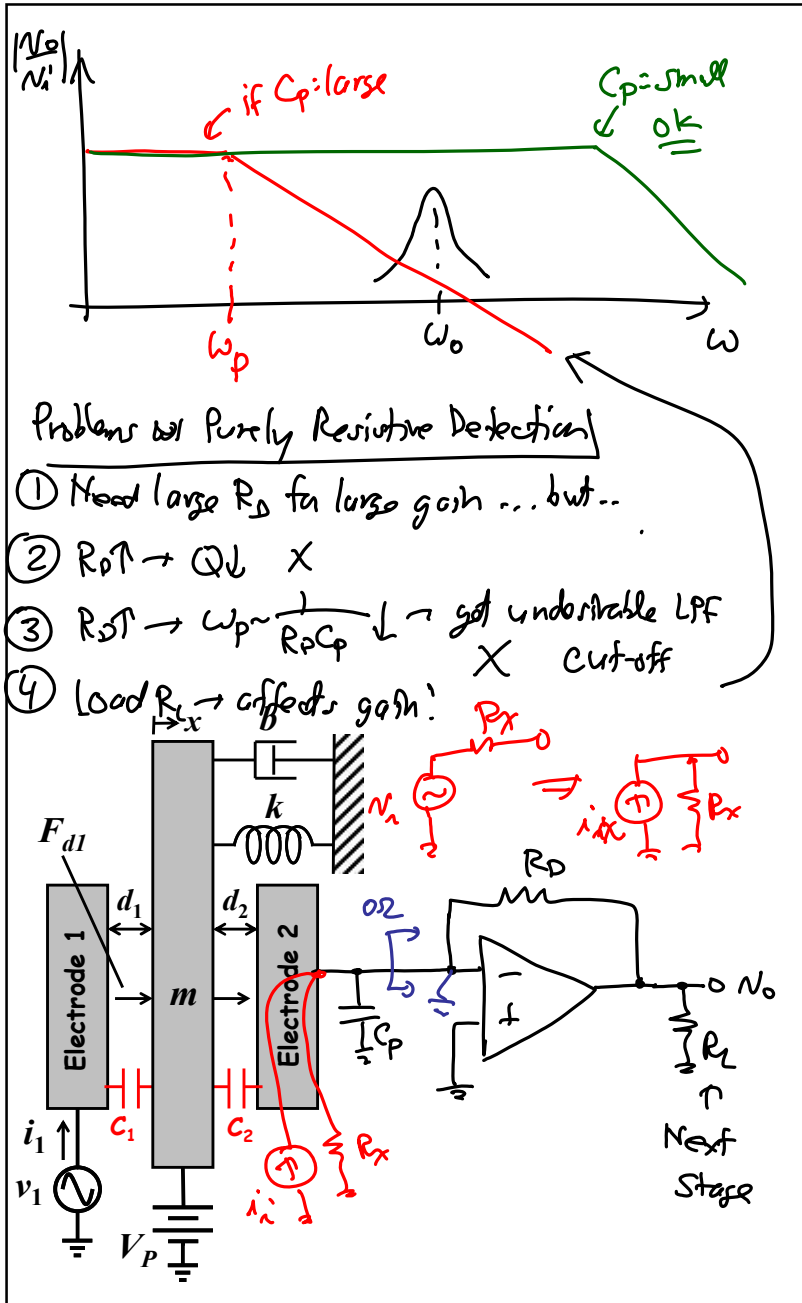 |No/Ni|
if Cp = large
Cp = small
ok
ωp
ω0
ω
Problems w/ Purely Resistive Detection
① Need large RD for large gain ... but..
② RD↑ → Q↓ X
③ RD↑ → ωp ~ 1/(RDCp) ↓ → got undesirable LPF
X cut-off
④ Load RL → affects gain!
x
b
k
Fd1
d1
d2
Electrode 1
m
Electrode 2
C1
C2
i1
v1
VP
ii
Rx
Rx
Ni
⇒
iix
Rx
0Ω
Cp
RD
−
+
No
RL
↑
Next
Stage